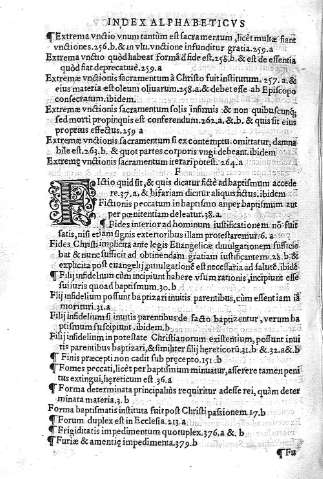 INDEX ALPHABETICVS
¶ Extrema vnctio vnum tantum est sacramentum, licèt multæ fiant
vnctiones.256.b.& in vlt. vnctione infunditur gratia.259.a
Extrema vnctio quòd habeat formã de fide est.258.b.& est de essentia
quòd sit deprecatiuæ.259.a
Extremæ vnctionis sacramentum à Christo fuit institutum. 257.a.&
eius materia est oleum oliuarum.258.a.& debet esse ab Episcopo
consecratum.ibidem.
Extremæ vnctionis sacramentum solis infirmis & non quibuscunq;
sed morti propinquis est conferendum.262.a.&.b.& quis sit eius
proprius effectus.259 a
Extremæ vnctionis sacramentum si ex contemptu omittatur, damna
bile est.263.b. & quot partes corporis vngi debeant.ibidem
Extremę vnctionis sacramentum iterari potest. 264.a
F
Fictio quid sit, & quis dicatur fictè ad baptismum accede
re.37.a.& bifariam dicitur aliquis fictus.ibidem
Fictionis peccatum in baptismo an per baptismum aut
per pœnitentiam deleatur.38.a.
¶ Fides interior ad hominum iustificationem nõ sufi
satis, nisi etiam signis exterioribus illam protestaremur.6.a
Fides Christi implicita ante legis Euangelicæ diuulgationem sufficie
bat & nunc sufficit ad obtinendam gratiam iustificantem.28.b.&
explicita post euangelij diuulgationẽ est necessaria ad salutẽ.ibidẽ
¶ Filij infidelium cùm incipiunt habere vsum rationis, incipiunt esse
sui iuris quoad baptismum.30.b
Filij infidelium possunt baptizari inuitis parentibus, cùm essent iam
morituri.31.a
Filij infidelium si inuitis parentibus de facto baptizentur, verum ba
ptismum suscipiunt.ibidem.b
Filij infidelium in potestate Christianorum existentium, possunt inui
tis parentibus baptizari, & similiter filij hæreticorũ.31.b & 32.a&.b
¶ Finis præcepti non cadit sub præcepto.151.b
¶ Fomes peccati, licèt per baptismum minuatur, asserere tamen peni
tus extingui, hæreticum est 36.a
¶ Forma determinata principaliùs requiritur adesse rei, quàm deter
minata materia.3.b
Forma baptismatis instituta fuit post Christi passionem.17.b
¶ Forum duplex est in Ecclesia.213.a
¶ Frigiditatis impedimentum quotuplex.376.a &.b
¶ Furiæ & amentiæ impedimenta.379.b
¶ Fu